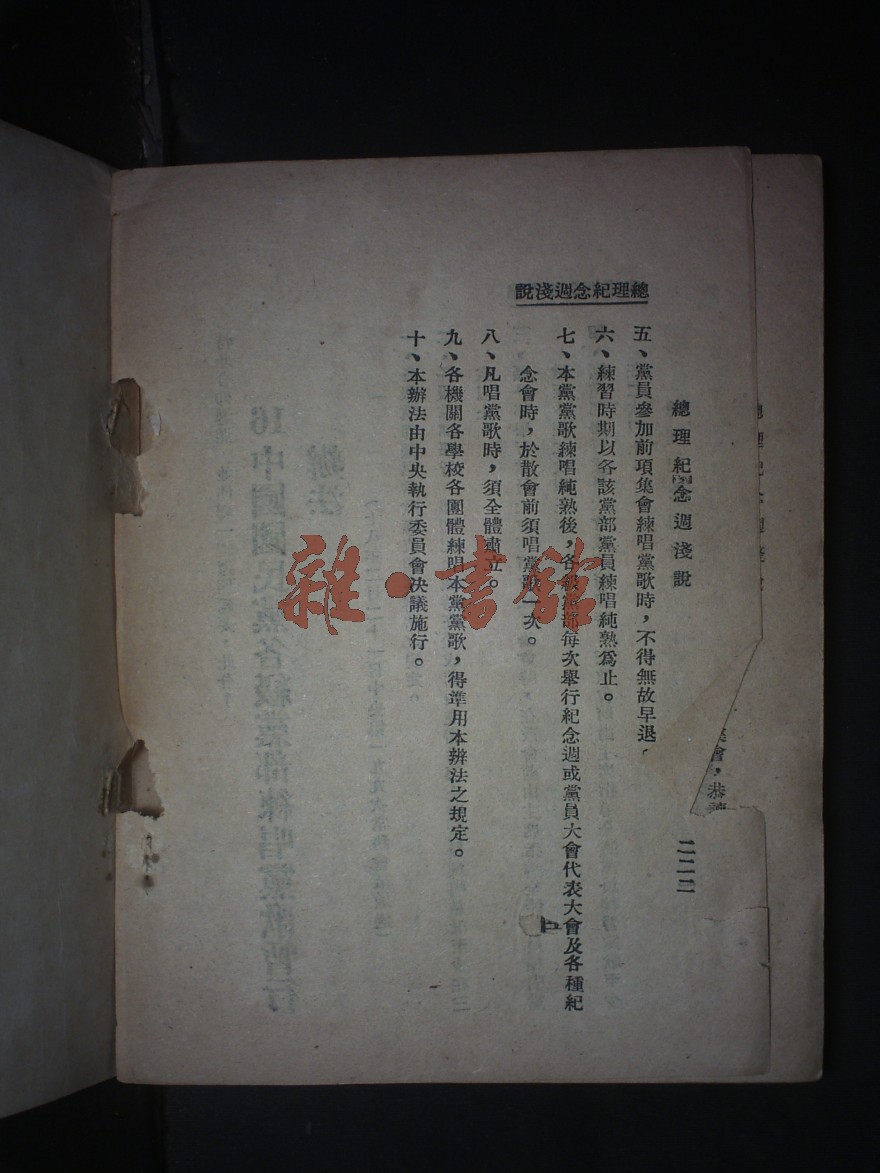 總理紀念週淺說
總理紀念週淺說
二二二
五、黨員參加前項集會練唱黨歌時，不得無故早退。
六、練習時期以各該黨部黨員練唱純熟爲止。
七、本黨黨歌練唱純熟後，各級黨部每次舉行紀念週或黨員大會代表大會及各種紀
念會時，於散會前須唱黨歌一次。
八、凡唱黨歌時，須全體肅立。
九、各機關各學校各團體練唱本黨黨歌，得準用本辦法之規定。
十、本辦法由中央執行委員會決議施行。
16 中國國民黨各級黨部練唱黨歌暫行
辦法
會，恭
雜·書館